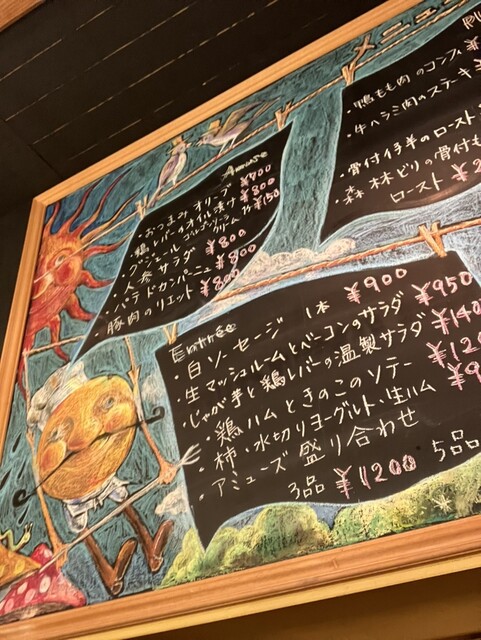 メニュー
鴨もも肉のコンフィ
・牛ハラミ肉のステーキ
・骨付仔羊のロースト
・森林どりの骨付も
ロースト
Amuse
・おつまみオリーブ ¥400
・鶏レバーのオイル漬け ¥800
・グジェール ゴルゴンゾーラクリーム ¥150
・人参サラダ ¥800
・パテドカンパーニュ ¥800
・豚肉のリエット ¥800
Entrée
・白ソーセージ 1本 ¥900
・生マッシュルームとベーコンのサラダ ¥950
・じゃが芋と鶏レバーの温製サラダ ¥140
・鶏ハムときのこのソテー ¥120
・柿・水切りヨーグルト・生ハム ¥9
・アミューズ盛り合わせ
3品 ¥1200 5品